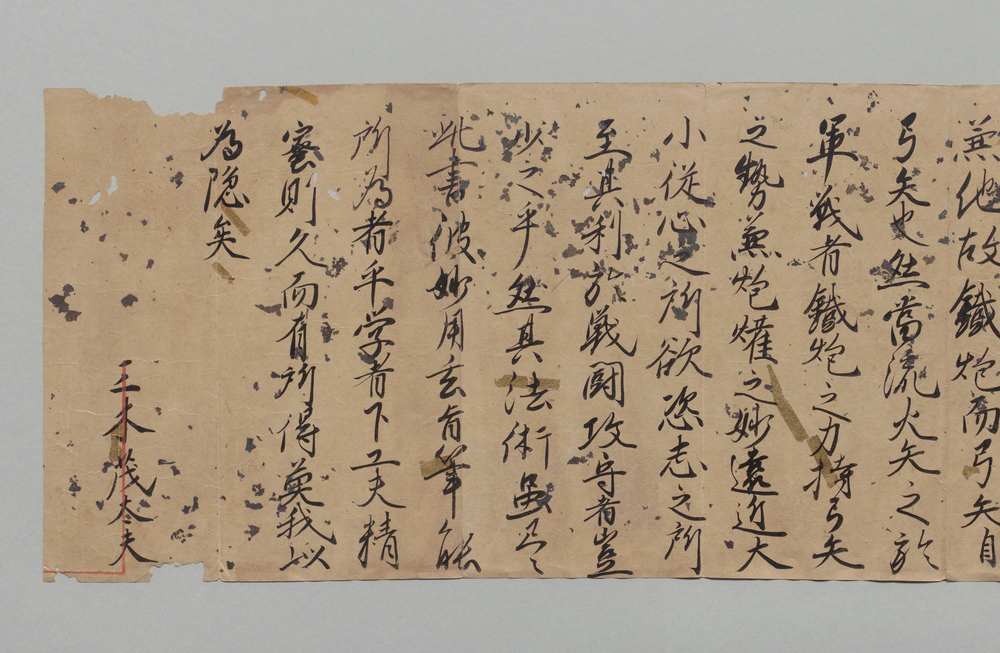 兼他故鐵炮而弓矢自
弓矢也然當流火矢之於
軍戦者鐵炮之力持弓矢
之勢兼炮㷄之妙遠近大
小従心之所欲恣志之所
至其利於戦闘攻守者豈
少之乎然其法術盡尽
此書彼妙用玄旨筆能
所為者乎学者下工夫精
密則久而有所得莫我以
為隠矣
三木茂太夫